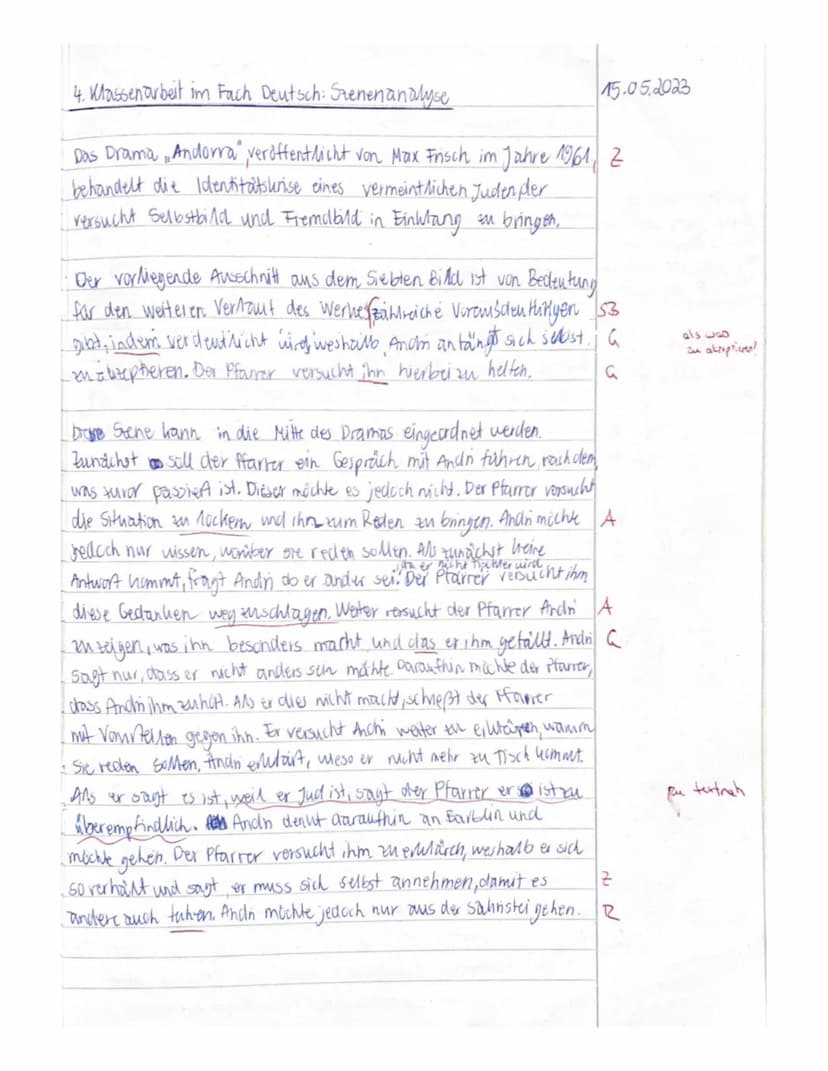 4. Klassenarbeit im Fach Deutsch: Szenenanalyse 15.05.2023
Das Drama „Andorra“, veröffentlicht von Max Frisch im Jahre 1961, Z
behandelt die Identitätskrise eines vermeintlichen Juden, der
versucht Selbstbild und Fremdbild in Einklang zu bringen.
Der vorliegende Ausschnitt aus dem Siebten Bild ist von Bedeutung
für den weiteren Verlauf des Werkes zahlreiche SB
gibt, indem verdeutlicht wird, weshalb Andri anfängt sich selbst G als was
zu akzeptieren. Der Pfarrer versucht ihn hierbei zu helfen. G zu akzeptieren?
Diese Szene kann in die Mitte des Dramas eingeordnet werden.
Zunächst soll der Pfarrer ein Gespräch mit Andri führen, nach dem
was zuvor passiert ist. Dieser möchte es jedoch nicht. Der Pfarrer versucht
die Situation zu lockern und ihn zum Reden zu bringen. Andri möchte A
jedoch nur wissen, worüber sie reden sollen. Als zunächst keine
, da er nicht Tischler wird
Antwort kommt, fragt Andri ob er ander sei. Der Pfarrer versucht ihm
diese Gedanken wegzuschlagen. Weiter versucht der Pfarrer Andri A
zu zeigen, was ihn besonders macht und das er ihm gefällt. Andri G
sagt nur, dass er nicht anders sein möchte. Daraufhin möchte der Pfarrer,
dass Andri ihm zuhört. Als er dies nicht macht, schießt der Pfarrer
mit Vorurteilen gegen ihn. Er versucht Andri weiter zu erklären, warum
sie reden sollen, Andri erklärt, wieso er nicht mehr zu Tisch kommt.
Als er sagt es ist, weil er Jud ist, sagt der Pfarrer er ist zu zu textnah
überempfindlich. Andri denkt daraufhin an Barblin und
möchte gehen. Der Pfarrer versucht ihm zu erklären, weshalb er sich
so verhält und sagt, er muss sich selbst annehmen, damit es Z
andere auch tuhen. Andri möchte jedoch nur aus der gehen. R